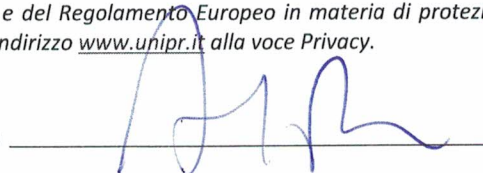 e del Regolamento Europeo in materia di protezi
ndirizzo www.unipr.it alla voce Privacy.